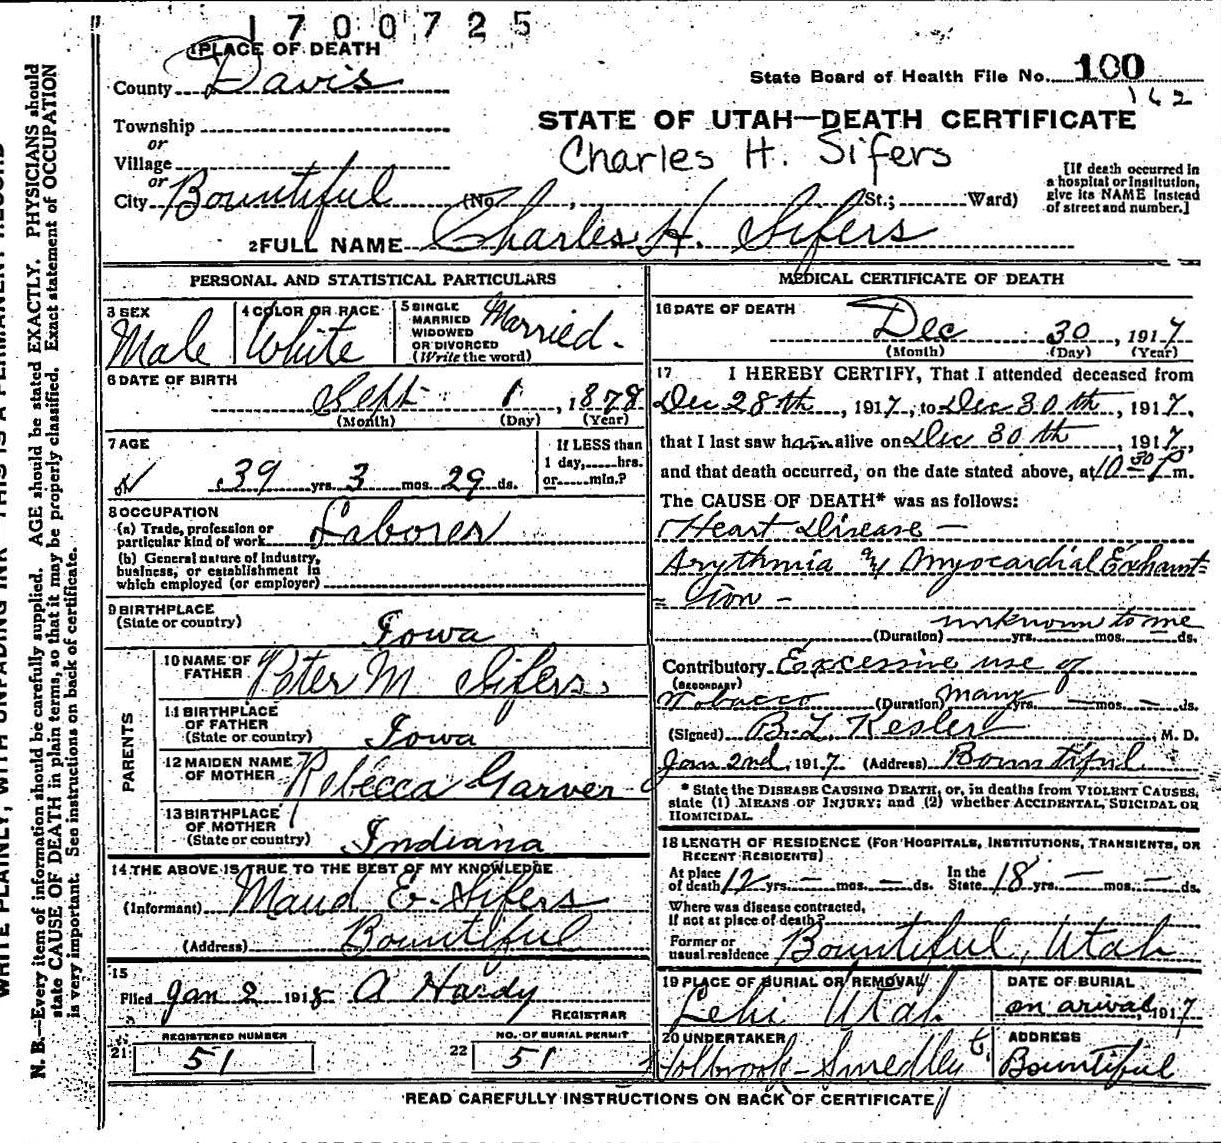 1700725
1 PLACE OF DEATH
County Davis
State Board of Health File No. 100
162
Township
or
Village
or
City Bountiful (No. , St.; Ward)
STATE OF UTAH—DEATH CERTIFICATE
Charles H. Sifers
[If death occurred in
a hospital or institution,
give its NAME instead
of street and number.]
2 FULL NAME Charles H. Sifers
PERSONAL AND STATISTICAL PARTICULARS
3 SEX
Male
4 COLOR OR RACE
White
5 SINGLE
MARRIED
WIDOWED
OR DIVORCED
(Write the word)
Married.
6 DATE OF BIRTH
Sept 1, 1878
(Month) (Day) (Year)
7 AGE
39 yrs. 3 mos. 29 ds.
If LESS than
1 day,......hrs.
or......min.?
8 OCCUPATION
(a) Trade, profession or
particular kind of work Laborer
(b) General nature of industry,
business, or establishment in
which employed (or employer)
9 BIRTHPLACE
(State or country)
Iowa
PARENTS
10 NAME OF
FATHER Peter M Sifers.
11 BIRTHPLACE
OF FATHER
(State or country) Iowa
12 MAIDEN NAME
OF MOTHER Rebecca Garver
13 BIRTHPLACE
OF MOTHER
(State or country) Indiana
14 THE ABOVE IS TRUE TO THE BEST OF MY KNOWLEDGE
(Informant) Maud E. Sifers
(Address) Bountiful
15
Filed Jan 2 1918 A Hardy
REGISTRAR
21 REGISTERED NUMBER
51
22 NO. OF BURIAL PERMIT
51
MEDICAL CERTIFICATE OF DEATH
16 DATE OF DEATH
Dec 30, 1917
(Month) (Day) (Year)
17 I HEREBY CERTIFY, That I attended deceased from
Dec 28th, 1917, to Dec 30th, 1917,
that I last saw him alive on Dec 30th, 1917,
and that death occurred, on the date stated above, at 10 30 P m.
The CAUSE OF DEATH* was as follows:
Heart Disease —
Arythmia Myocardial Exhaust=
= tion -
unknown to me
(Duration) yrs. mos. ds.
Contributory Excessive use of
(SECONDARY)
Tobacco (Duration) many yrs. — mos. — ds.
(Signed) B. L. Kesler, M. D.
Jan 2nd, 1917. (Address) Bountiful
* State the DISEASE CAUSING DEATH, or, in deaths from VIOLENT CAUSES,
state (1) MEANS OF INJURY; and (2) whether ACCIDENTAL, SUICIDAL OR
HOMICIDAL.
18 LENGTH OF RESIDENCE (FOR HOSPITALS, INSTITUTIONS, TRANSIENTS, OR
RECENT RESIDENTS)
At place
of death 12 yrs. — mos. — ds. In the
State 18 yrs. — mos. — ds.
Where was disease contracted,
if not at place of death?
Former or
usual residence Bountiful, Utah
19 PLACE OF BURIAL OR REMOVAL
Lehi Utah
DATE OF BURIAL
on arival, 1917
20 UNDERTAKER
Holbrook-Smedley
ADDRESS
Bountiful
READ CAREFULLY INSTRUCTIONS ON BACK OF CERTIFICATE
N. B.—Every item of information should be carefully supplied. AGE should be stated EXACTLY. PHYSICIANS should
state CAUSE OF DEATH in plain terms, so that it may be properly classified. Exact statement of OCCUPATION
is very important. See instructions on back of certificate.
WRITE PLAINLY, WITH UNFADING INK—THIS IS A PERMANENT RECORD